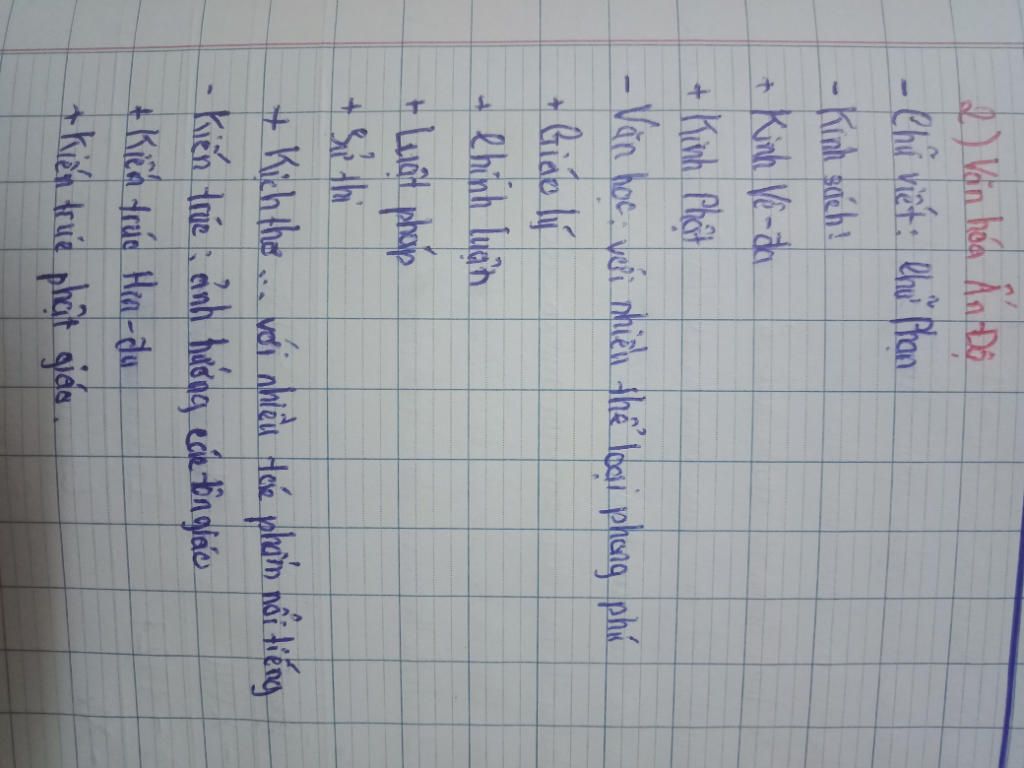 2) Văn hóa Ấn-Độ
- Chữ viết: chữ Phạn
- Kinh sách:
+ Kinh Vê-da
+ Kinh Phật
- Văn học: với nhiều thể loại phong phú
+ Giáo lý
+ Chính luận
+ Luật pháp
+ Sử thi
+ Kịch thơ ... với nhiều tác phẩm nổi tiếng
- Kiến trúc: ảnh hưởng của tôn giáo
+ Kiến trúc Hin-đu
+ Kiến trúc phật giáo.